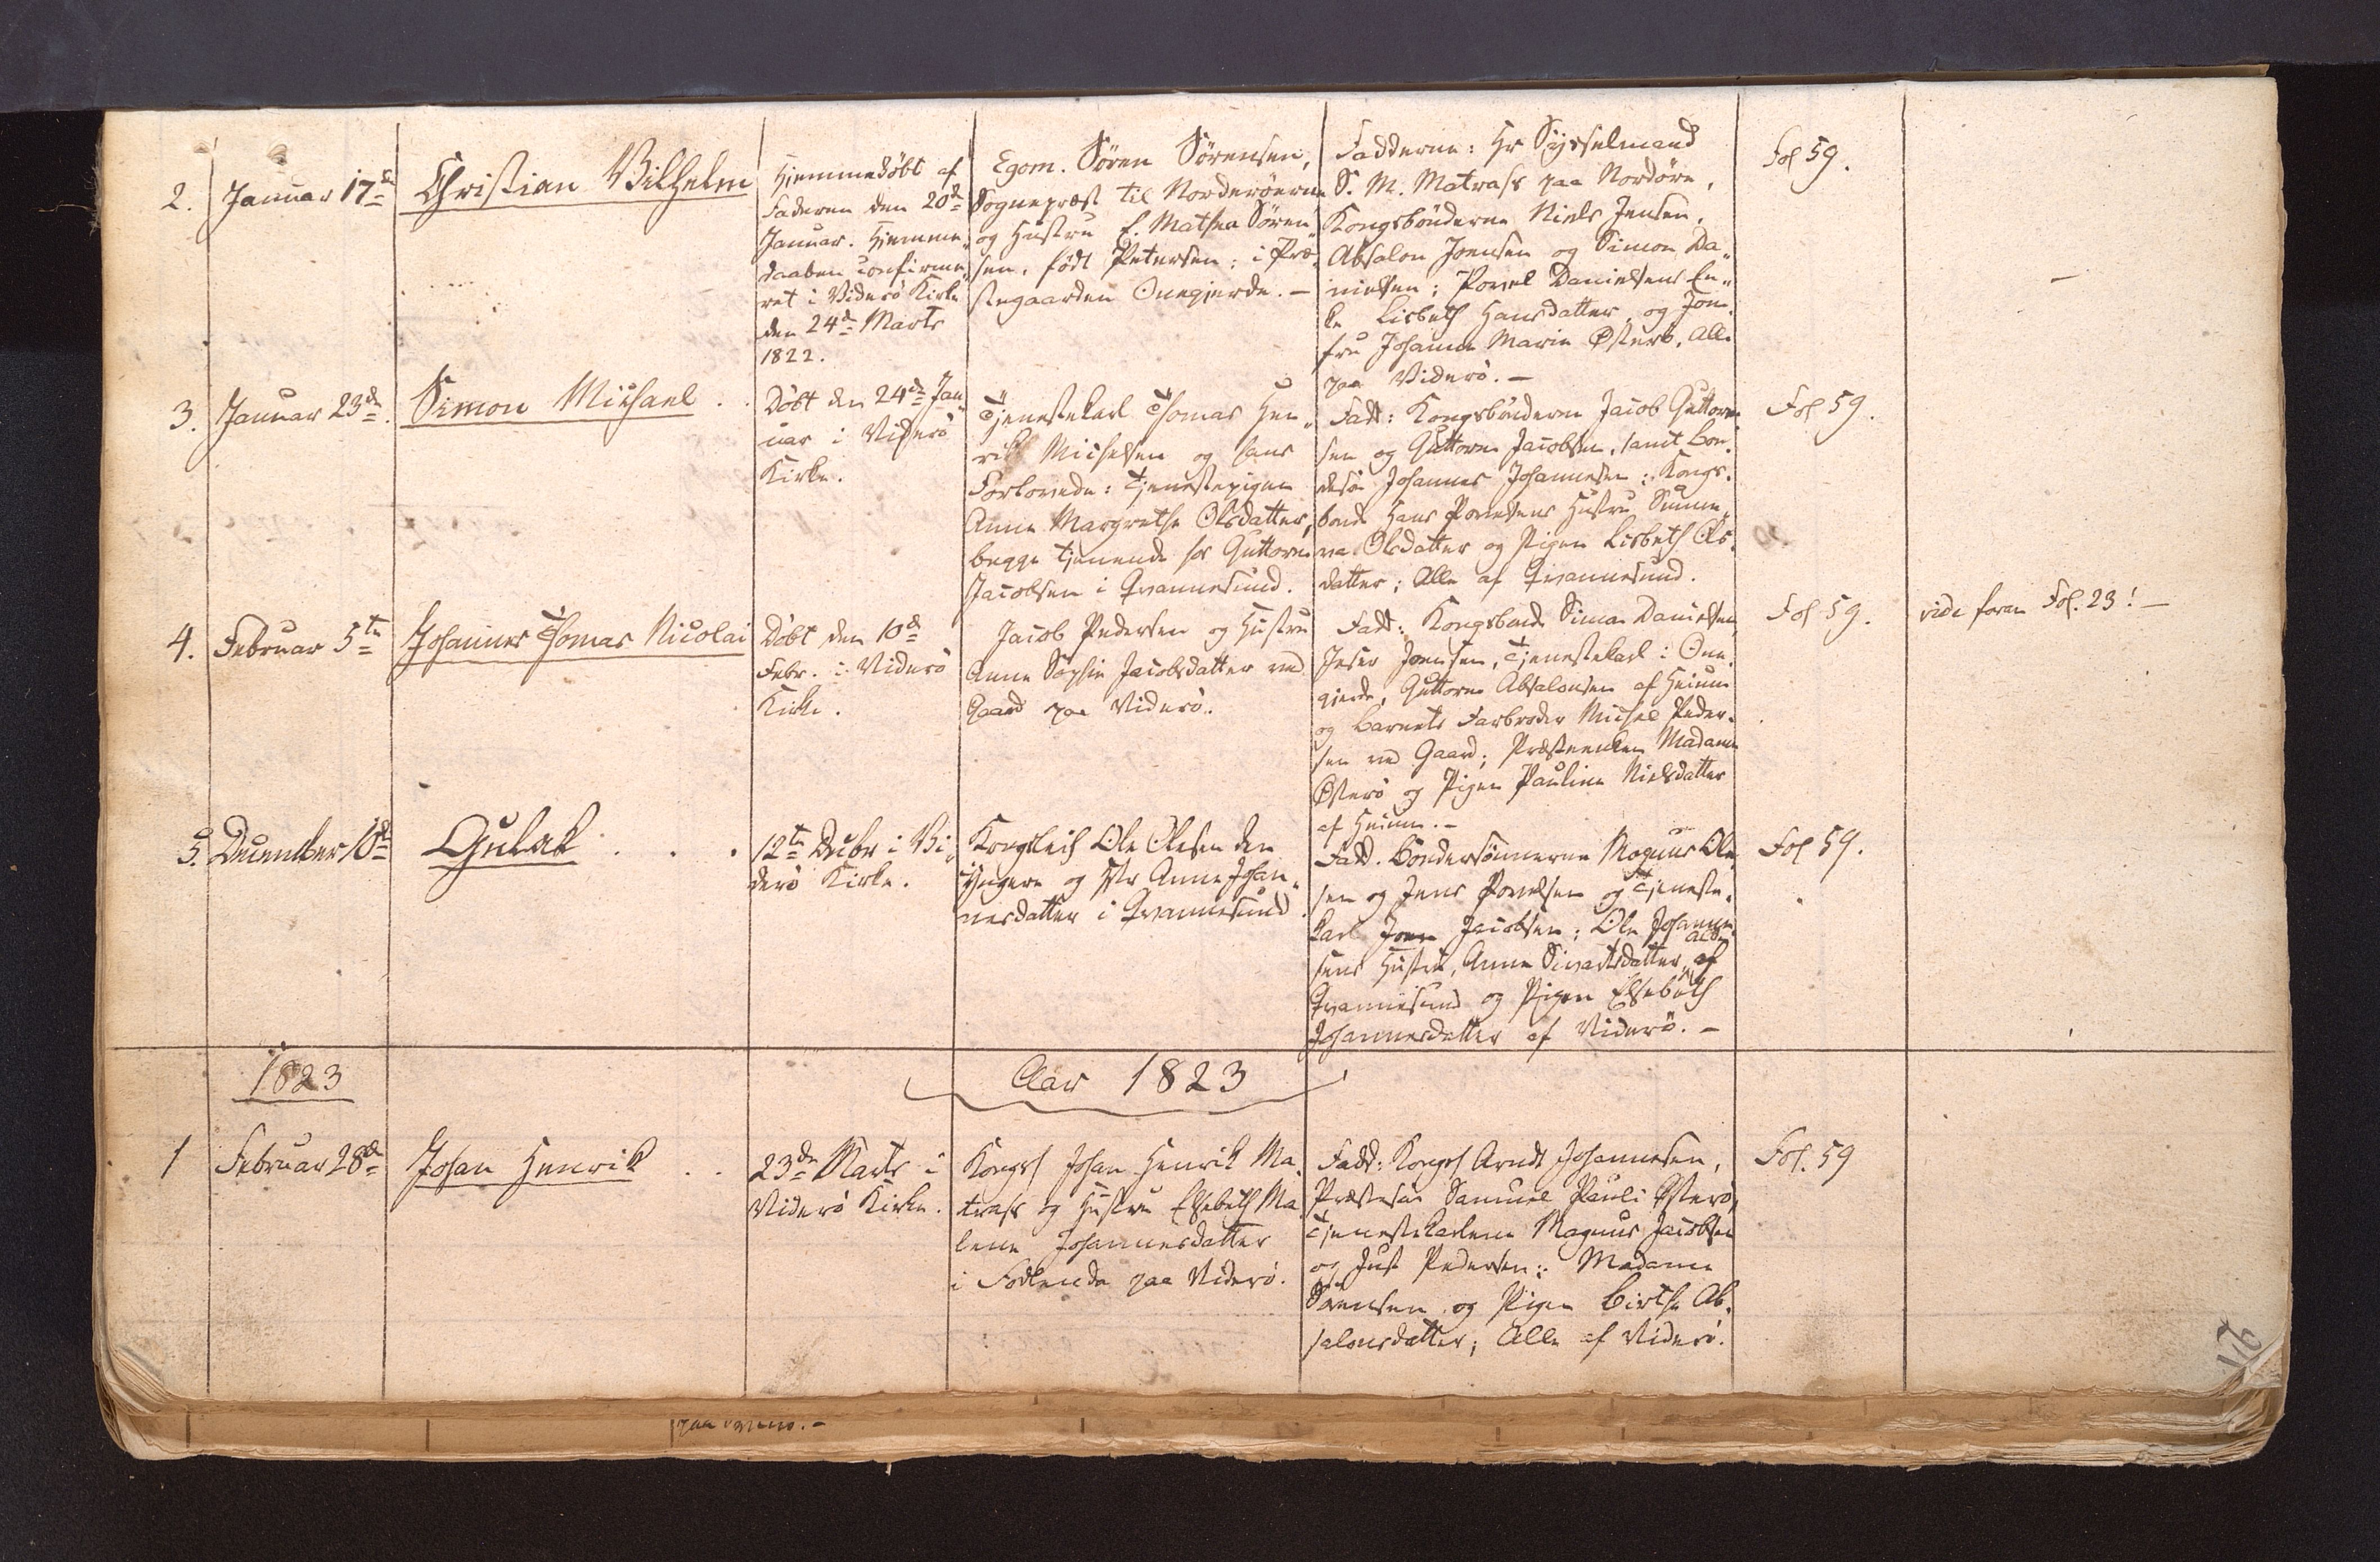 2.
Januar 17de
Christian Vilhelm
Hjemmedöbt af
Faderen den 20de
Januar. Hjemme-
daaben confirme-
ret i Viderö Kirke
den 24de Marts
1822.
Egom. Sören Sörensen,
Sognepræst til Norderöerne
og Hustru E. Mathea Sören-
sen, födt Petersen; i Præ-
stegaarden Onegjerde. –
Fadderne: Hr Sysselmand
S. M. Matrass paa Nordöre,
Kongsbönderne Niels Jensen,
Absalon Joensen og Simon Da-
nielsen; Povel Danielsens En-
ke Lisbeth Hansdatter, og Jom-
fru Johanne Marie Österö, Alle
paa Viderö. –
Fol 59.
–
3.
Januar 23de
Simon Michael . .
Döbt den 24de Jan-
uar i Viderö
Kirke.
Tjenestekarl Thomas Hen-
rik Michelsen og hans
Forlovede: Tjenestepigen
Anne Margrethe Olsdatter,
begge tjenende hos Guttorm
Jacobsen i Qvannesund.
Fadd: Kongsbönderne Jacob Guttorm-
sen og Guttorm Jacobsen, samt Bon-
desön Johannes Johannesen; Kongs-
bonde Hans Povelsens Hustru Sunne-
va Olsdatter og Pigen Lisbeth Ols-
datter; Alle af Qvannesund.
Fol 59.
4.
Februar 5te
Johannes Thomas Nicolai
Döbt den 10de
Febr. i Viderö
Kirke.
Jacob Pedersen og Hustru
Anne Sophie Jacobsdatter ved
Gaard paa Viderö.
Fadd: Kongsbonde Simon Danielsen,
Joensen, Tjenestekarl i One-
gjerde, Guttorm Absalonsen af Heium
og Barnets Farbroder Michel Peder-
sen ved Gaard; Præsteenken Madame
Österö og Pigen Pauline Nielsdatter
af Heium. –
Fol 59.
vide foran Fol. 23! –
5.
December 10de
Gulak . . .
12te Decbr i Vi-
derö Kirke.
Kongsleil Ole Olesen den
Yngere og Hstr Anne Johan-
nesdatter i Qvannesund
Fadd. Bondesönnerne Magnus Ole-
sen og Jens Povelsen og Tjeneste-
karl Joen Jacobsen; Ole Johannes-
sens Hustru, Anne Sivartsdatter, alle af
Qvannesund og Pigen Elsebeth
Johannesdatter af Viderö. –
Fol 59.
1823
Aar 1823
1
Februar 28de
Johan Henrik . .
23de Marts i
Viderö Kirke.
Kongsf Johan Henrik Ma-
trass og Hustru Elsebeth Ma-
lene Johannesdatter
i Fodlende paa Viderö.
Fadd: Kongsf Arndt Johannesen,
Præstesön Samuel Pauli Österö,
Tjenestekarlene Magnus Jacobsen
og Just Pedersen; Madame
Sörensen og Pigen Birthe Ab-
salonsdatter; Alle af Viderö.
Fol. 59